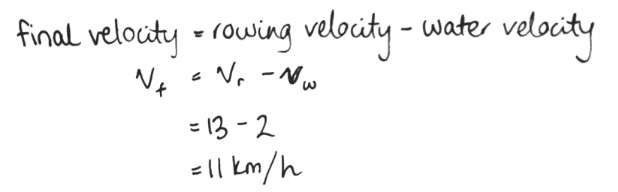 final velocity = rowing velocity - water velocity
Vf = Vr - Vw
= 13 - 2
= 11 km/h